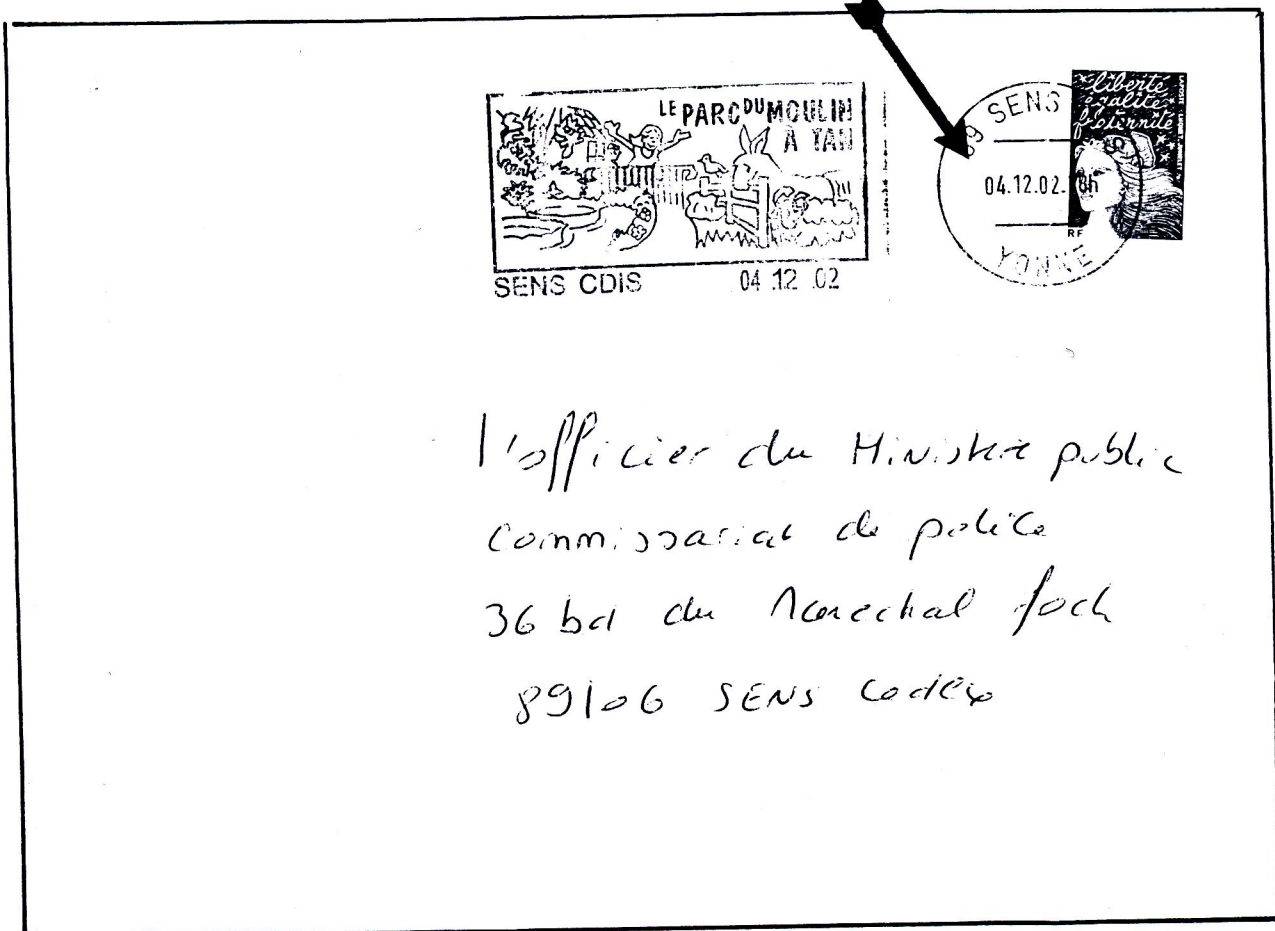 LE PARC DU MOULIN
À TAN
SENS CDIS 04.12.02
89 SENS
04.12.02. 18h
YONNE
liberté
égalité
fraternité
RF
l'officier du Ministère public
Commissariat de police
36 bd du Marechal foch
89106 SENS Cedex